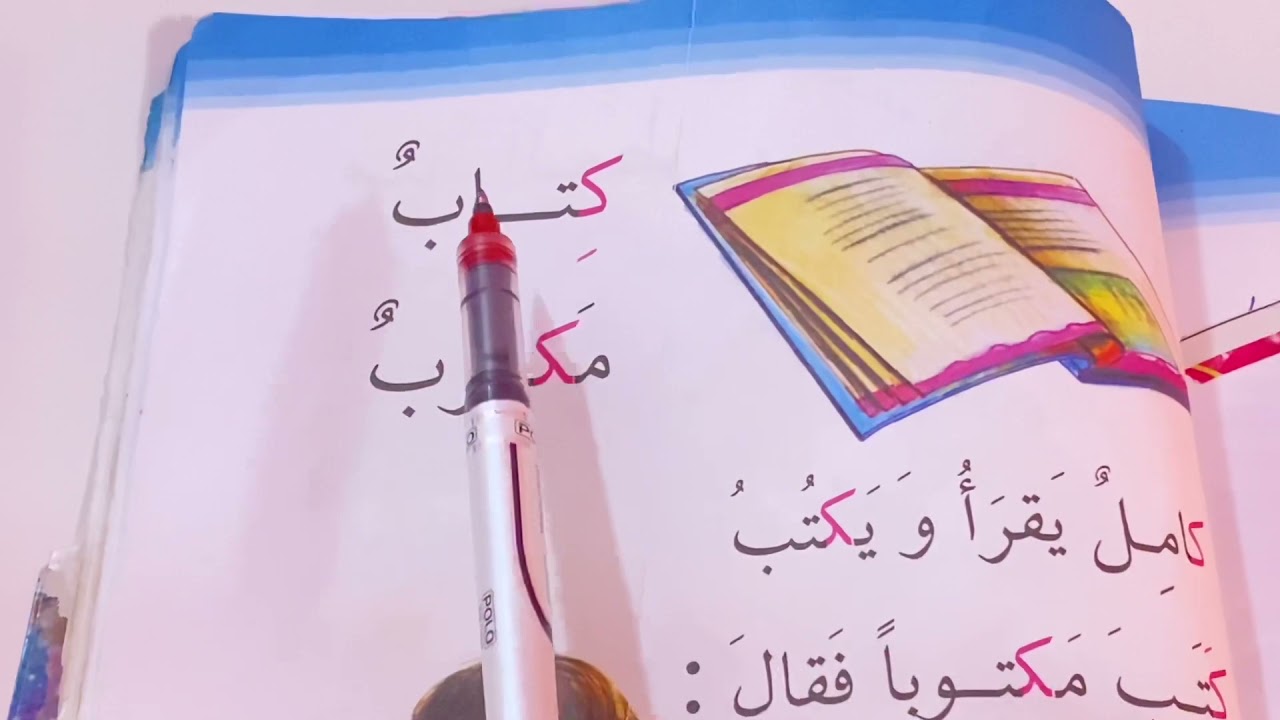 كِتـــابٌ
كامِلٌ يَقرَأُ وَ يَكتُبُ
كَتَبَ مَكتـوباً فَقالَ :
POLO